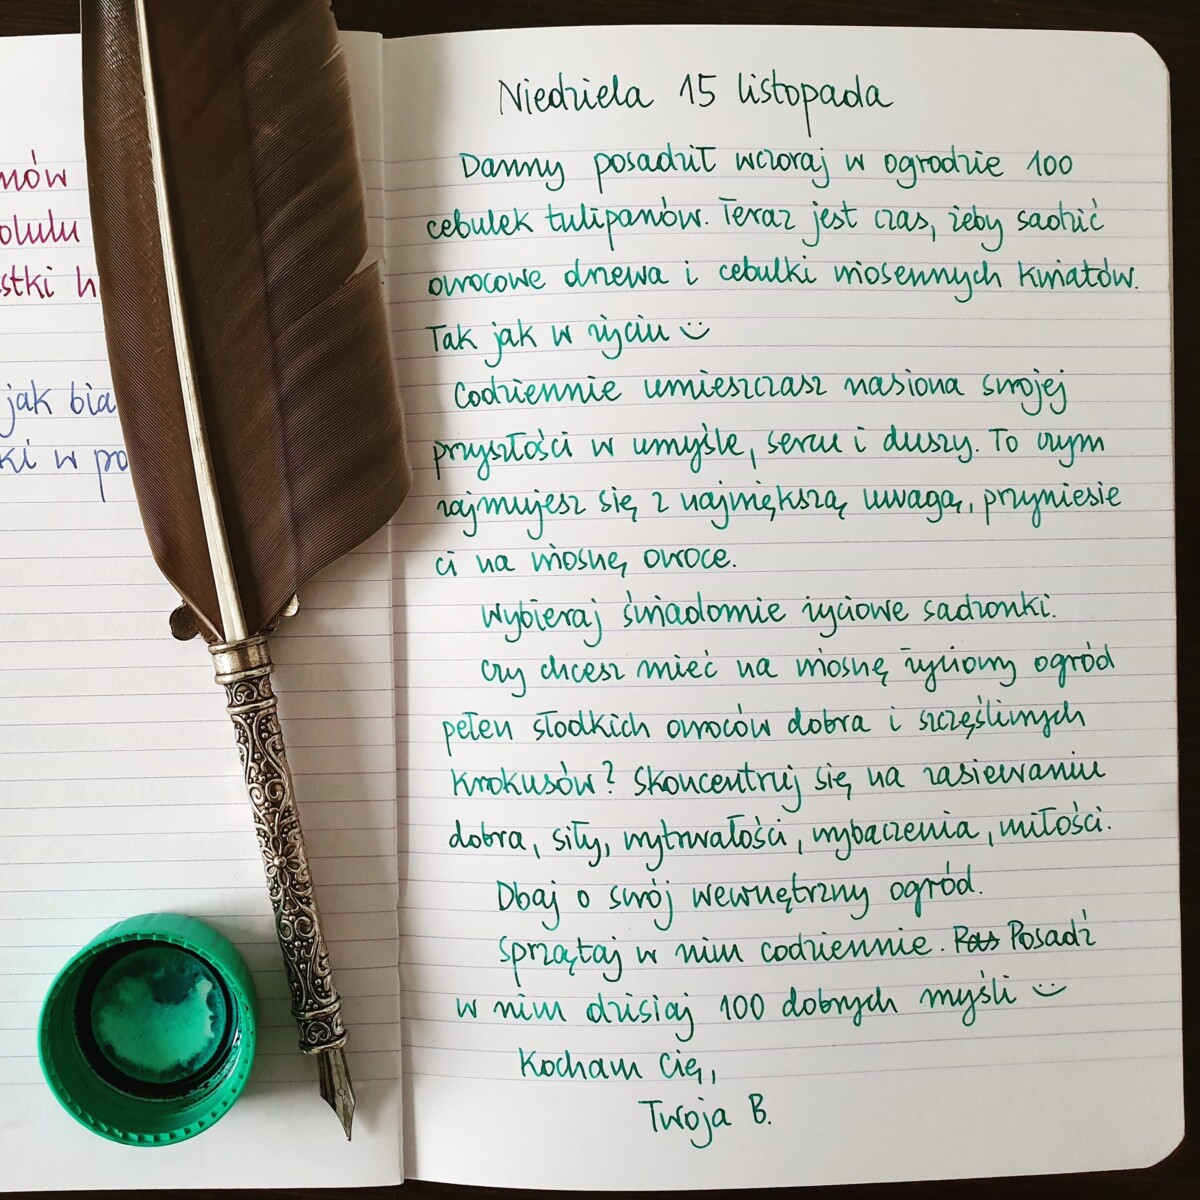 mów
olulu
stki h
jak bia
ki w po
Niedziela 15 listopada
Danny posadził wczoraj w ogrodzie 100
cebulek tulipanów. Teraz jest czas, żeby sadzić
owocowe drzewa i cebulki wiosennych kwiatów.
Tak jak w życiu :)
Codziennie umieszczasz nasiona swojej
przyszłości w umyśle, sercu i duszy. To czym
zajmujesz się z największą uwagą, przyniesie
ci na wiosnę owoce.
Wybieraj świadomie życiowe sadzonki.
Czy chcesz mieć na wiosnę życiowy ogród
pełen słodkich owoców dobra i szczęśliwych
krokusów? Skoncentruj się na zasiewaniu
dobra, siły, wytrwałości, wybaczenia, miłości.
Dbaj o swój wewnętrzny ogród.
Sprzątaj w nim codziennie. Posadź
w nim dzisiaj 100 dobrych myśli :)
Kocham Cię,
Twoja B.